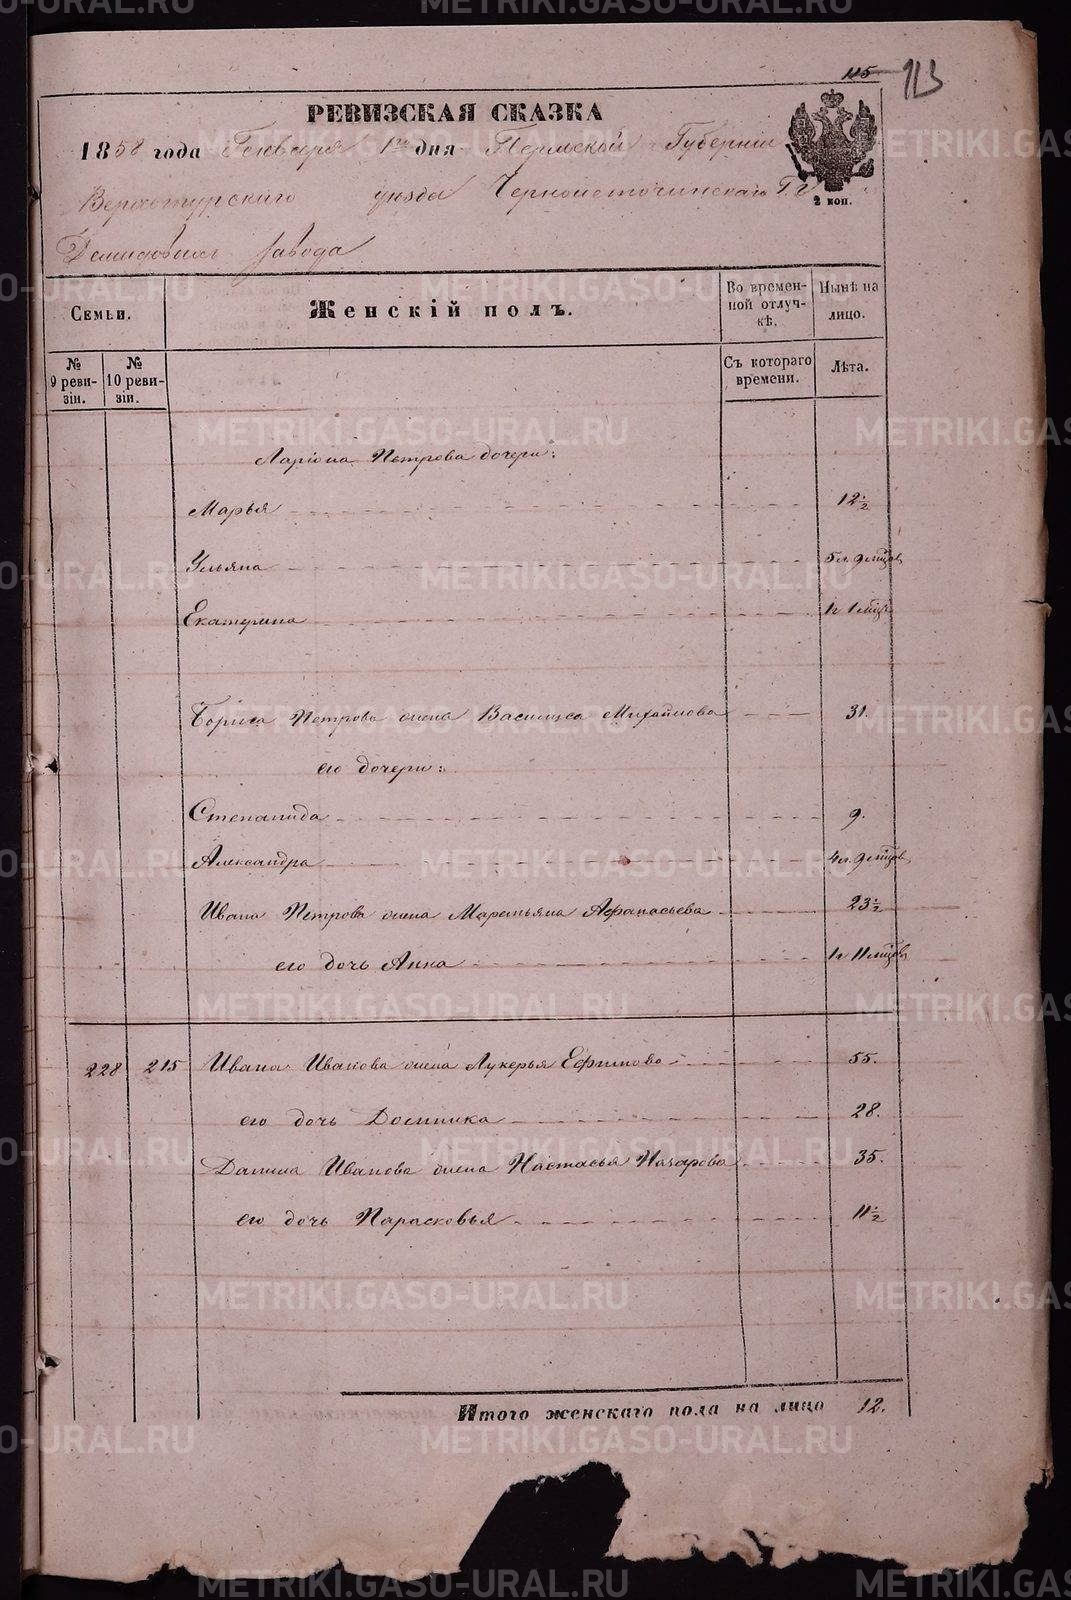 115 113
РЕВИЗСКАЯ СКАЗКА
1858 года Генваря 1го дня Пермской Губерніи
Верхотурскаго уѣзда Черноисточинскаго Г. Г.
2 коп.
Демидовых завода
Семьи. Женскій полъ. Во временной отлучкѣ. Нынѣ на лицо.
№ 9 ревизіи. № 10 ревизіи. Съ котораго времени. Лѣта.
Ларіона Петрова дочери:
Марья 12 ½
Ульяна 5 л. 9 мѣцов
Екатерина 1 г 1 мѣц
Бориса Петрова жена Василиса Михайлова 31.
его дочери:
Степанида 9.
Александра 4 л. 9 мѣцов
Ивана Петрова жена Маремьяна Афанасьева 23 ½
его дочь Анна 1 г 11 мѣцов
228 215 Ивана Иванова жена Лукерья Ефимова 55.
его дочь Домника 28.
Данила Иванова жена Настасья Назарова 35.
его дочь Парасковья 11 ½
Итого женскаго пола на лицо 12.
METRIKI.GASO-URAL.RU